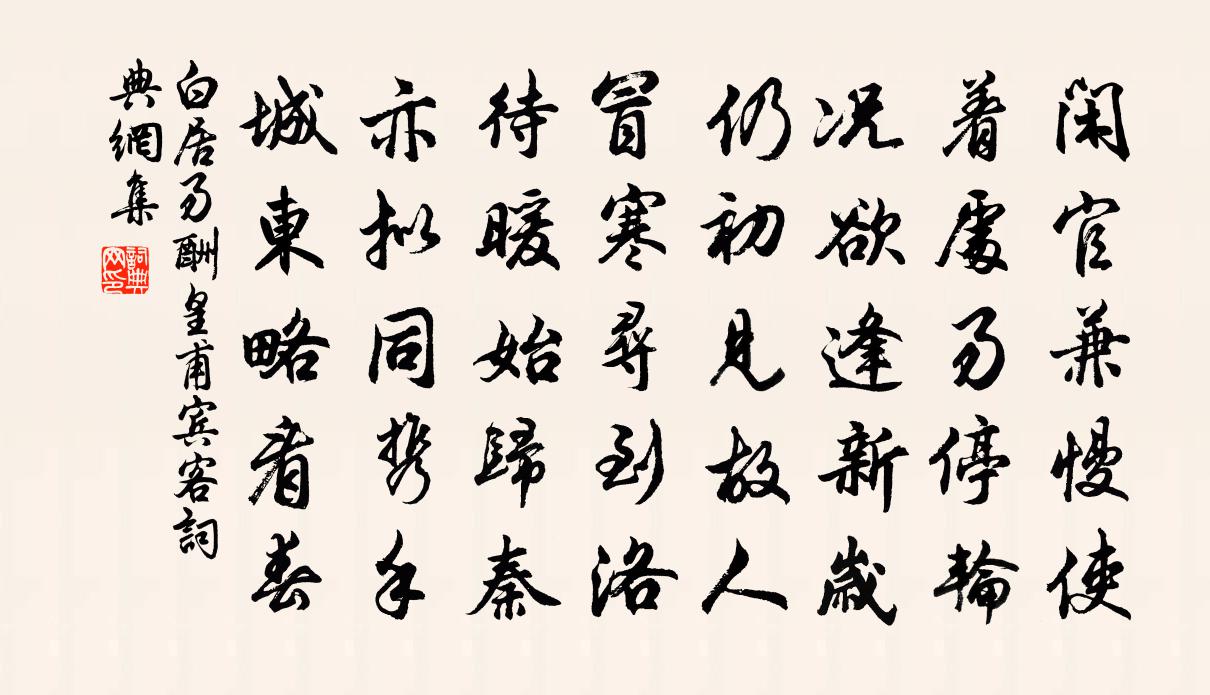 閑官兼慢使
着處易停輪
况欲逢新歲
仍初見故人
冒寒尋到洛
待暖始歸秦
亦拟同携手
城東略看春
白居易酬皇甫宾客詞
典網集
詞典
网印